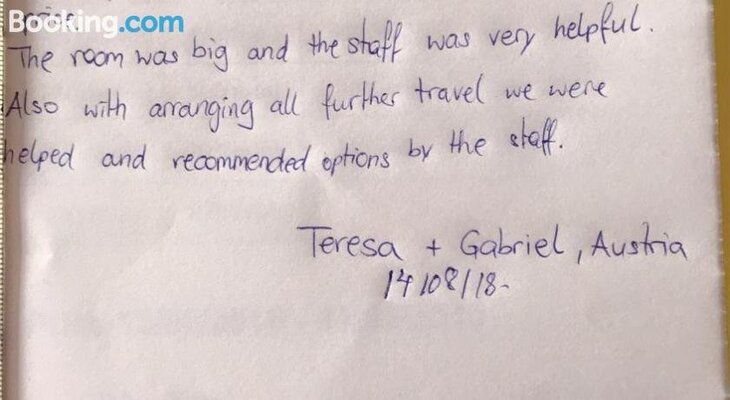 Booking.com
The room was big and the staff was very helpful.
Also with arranging all further travel we were
helped and recommended options by the staff.
Teresa + Gabriel, Austria
14/08/18-